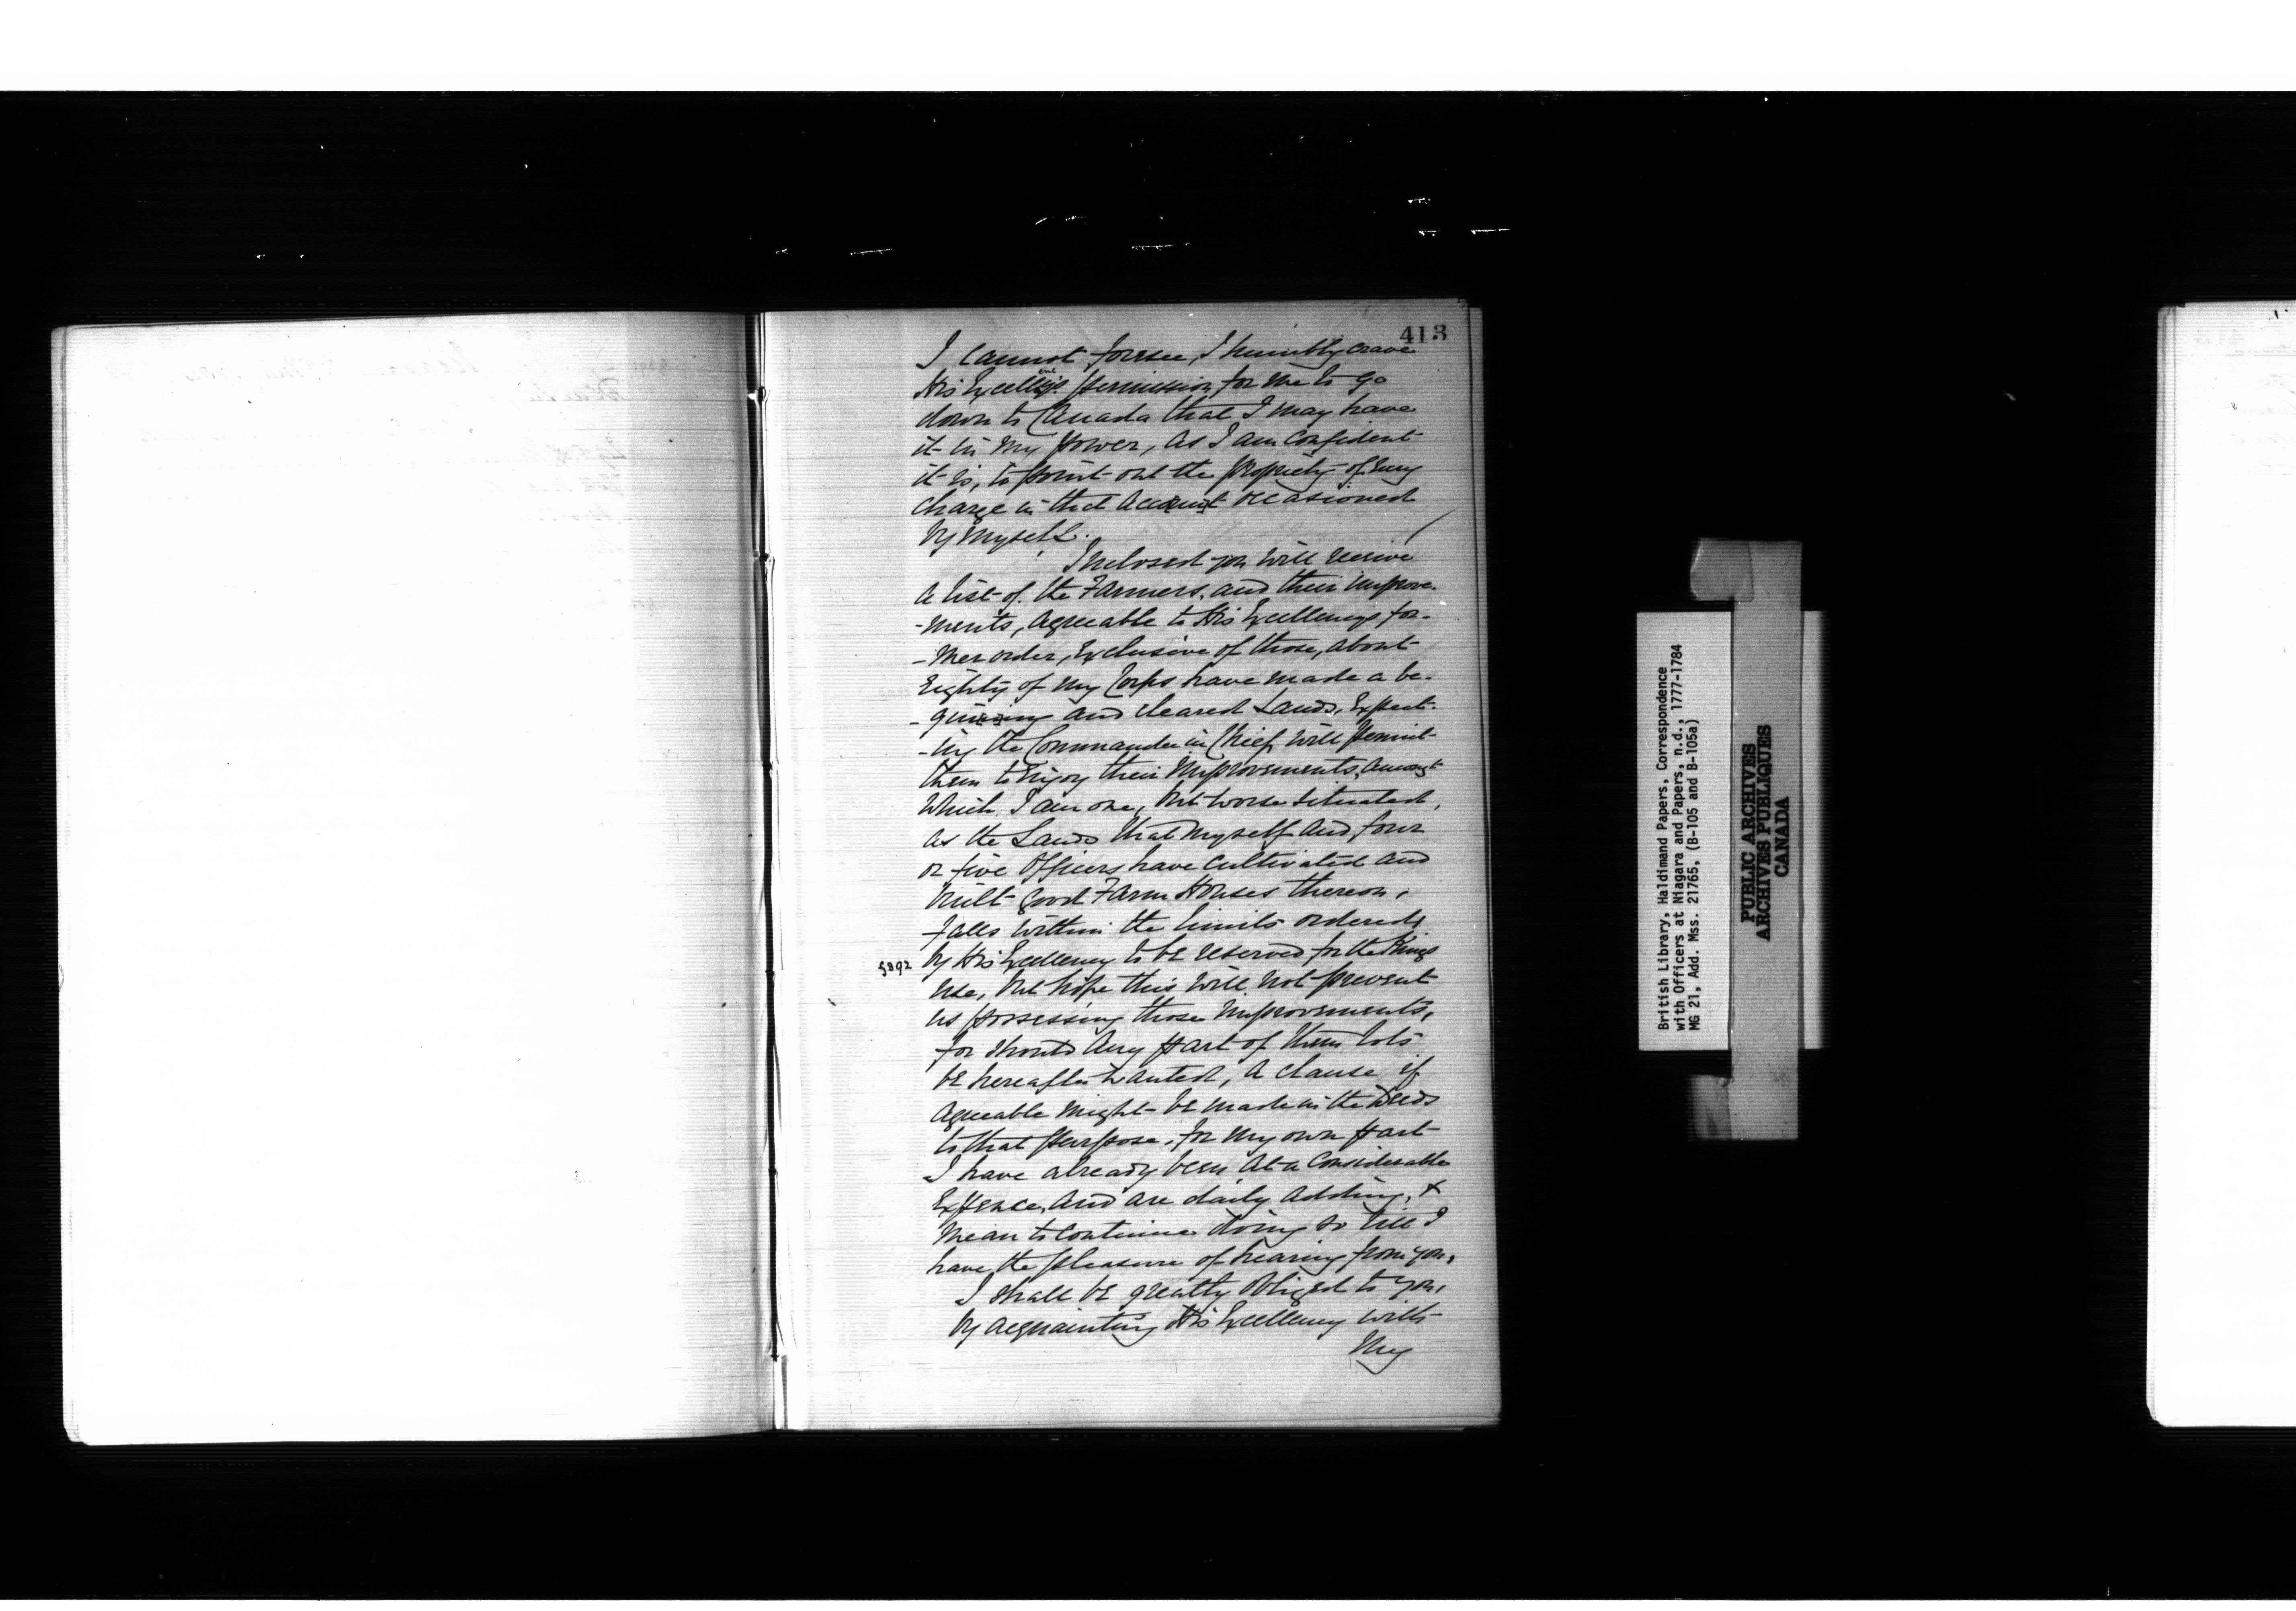 413
I cannot forsee, I humbly crave
His Excellency's permission for me to go
down to Canada that I may have
it in my power, as I am confident
it is, to point out the propriety of every
charge in that account occasioned
by myself.
Inclosed you will receive
a list of the Farmers, and their improve-
-ments, agreeable to His Excellency's for-
-mer order, exclusive of those, about
Eighty of my Corps have made a be-
-ginning and cleared Lands, Expect-
-ing the Commander in Chief, will permit
them to enjoy their improvements, amongst
which I am one, but worse situated,
as the Lands that myself and four
or five Officers have cultivated and
built good Farm Houses thereon,
falls within the limits ordered
5892
by His Excellency to be reserved for the Kings
use, but hope this will not prevent
us possessing those improvements,
for should any part of them lots
be hereafter wanted, a clause if
agreeable might be made in the Deeds
to that purpose, for my own part
I have already been at a considerable
Expence, and are daily adding, &
mean to continue doing so till I
have the pleasure of hearing from you,
I shall be greatly obliged to you,
by acquainting His Excellency with
my
British Library, Haldimand Papers, Correspondence
with Officers at Niagara and Papers, n.d., 1777-1784
MG 21, Add. Mss. 21765, (B-105 and B-105a)
PUBLIC ARCHIVES
ARCHIVES PUBLIQUES
CANADA